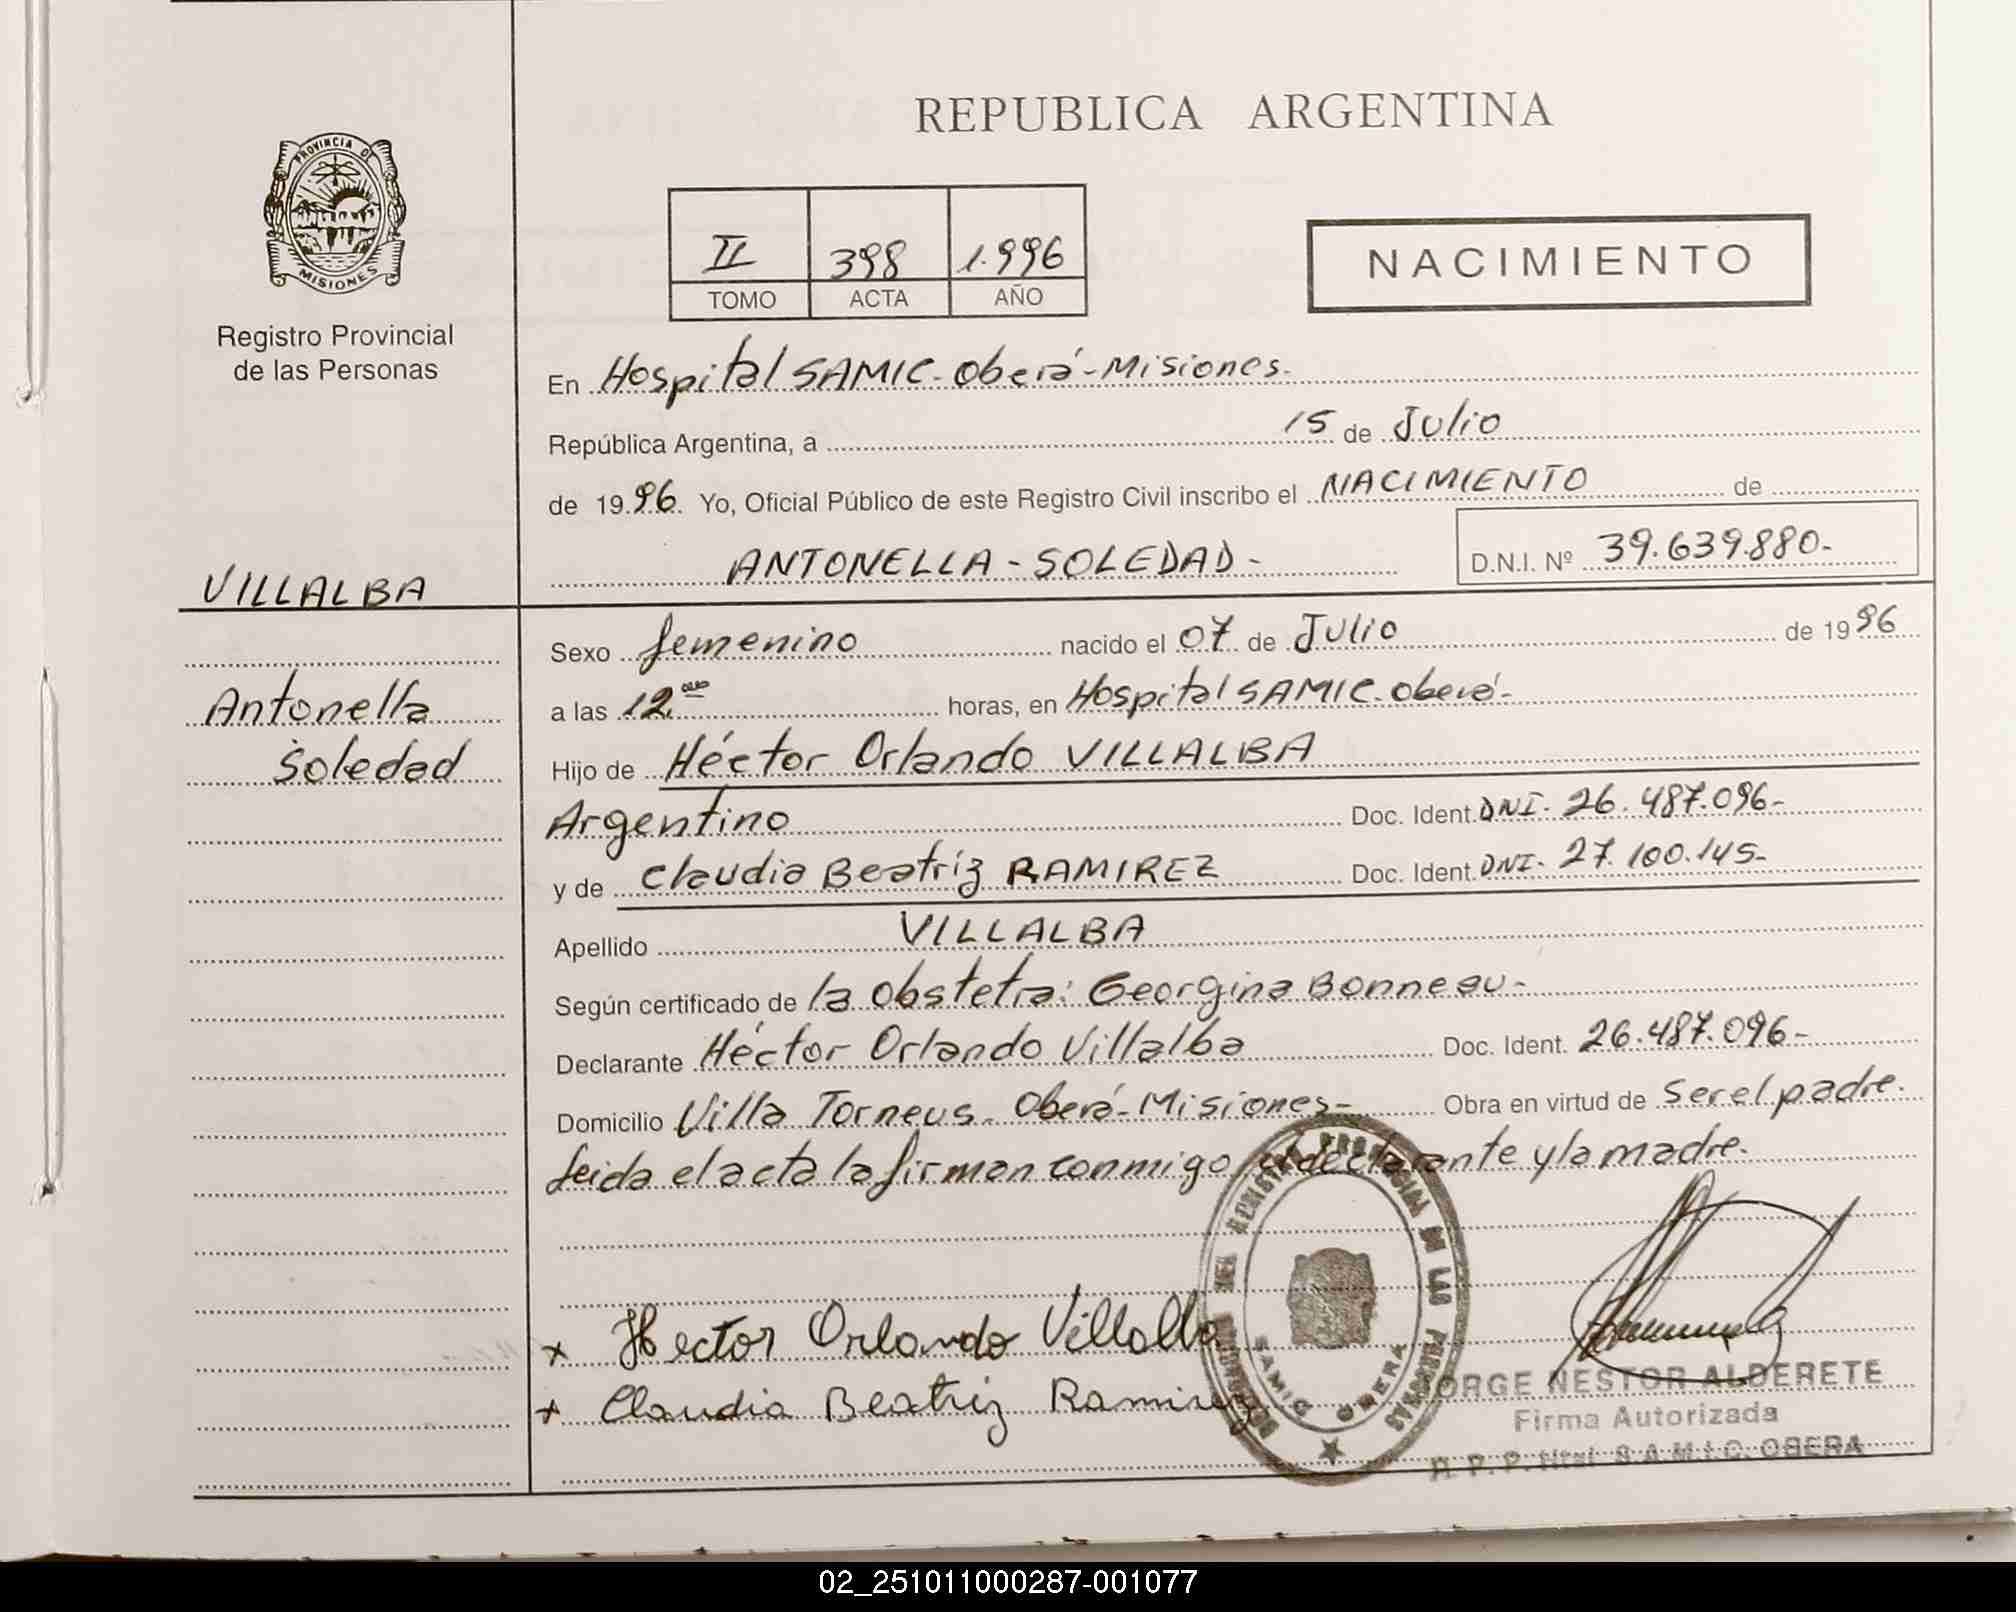 REPUBLICA ARGENTINA
PROVINCIA DE
MISIONES
Registro Provincial
de las Personas
II 398 1.996
TOMO ACTA AÑO
NACIMIENTO
En Hospital SAMIC-Oberá-Misiones.
República Argentina, a 15 de Julio
de 1996. Yo, Oficial Público de este Registro Civil inscribo el NACIMIENTO de
ANTONELLA - SOLEDAD - D.N.I. Nº 39.639.880-
VILLALBA
Antonella
Soledad
Sexo femenino nacido el 07 de Julio de 1996
a las 12.00 horas, en Hospital SAMIC-Oberá-
Hijo de Héctor Orlando VILLALBA
Argentino Doc. Ident. DNI. 26.487.096-
y de Claudia Beatriz RAMIREZ Doc. Ident. DNI. 27.100.145-
Apellido VILLALBA
Según certificado de la obstetra: Georgina Bonneau-
Declarante Héctor Orlando Villalba Doc. Ident. 26.487.096-
Domicilio Villa Torneus. Oberá-Misiones- Obra en virtud de ser el padre.
Leida el acta la firman conmigo, el declarante y la madre.
x Hector Orlando Villalba
x Claudia Beatriz Ramirez
REGISTRO PROVINCIAL DE LAS PERSONAS
SAMIC OBERA
JORGE NESTOR ALDERETE
Firma Autorizada
R. P. P. Htal S.A.M.I.C. OBERA
02_251011000287-001077